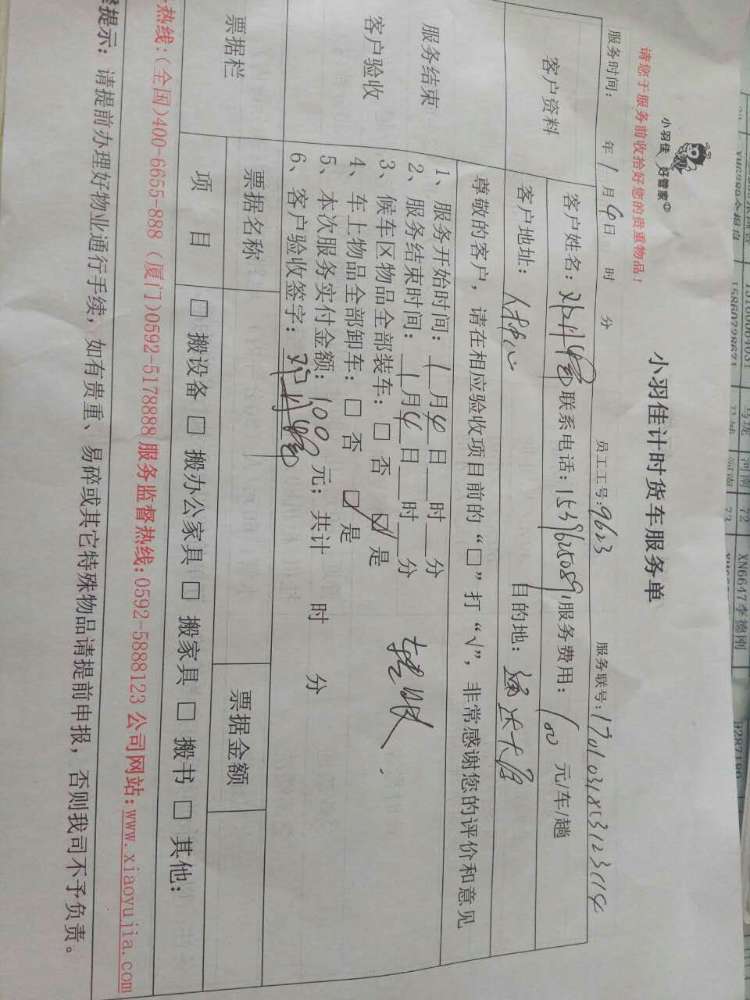 小羽佳 好管家
小羽佳计时货车服务单
请您于服务前收拾好您的贵重物品！
员工工号:9623 服务联号:
服务时间： 年 1 月 4 日 时 分
客户资料
客户姓名： 联系电话: 服务费用：100 元/车/趟
客户地址： 目的地：
尊敬的客户，请在相应验收项目前的“□”打“√”，非常感谢您的评价和意见
服务结束
客户验收
1、服务开始时间：1月4日__时__分
2、服务结束时间：1月4日__时__分
3、候车区物品全部装车：□ 否 ☑ 是
4、车上物品全部卸车：□ 否 ☑ 是
5、本次服务实付金额：100 元；共计 时 分
6、客户验收签字：
票据栏
票据名称 票据金额
项 目 □ 搬设备 □ 搬办公家具 □ 搬家具 □ 搬书 □ 其他：
热线：(全国)400-6655-888 (厦门)0592-5178888 服务监督热线:0592-5888123 公司网站:www.xiaoyujia.com
提示：请提前办理好物业通行手续，如有贵重、易碎或其它特殊物品请提前申报，否则我司不予负责。
XN6647李德刚
河南 72